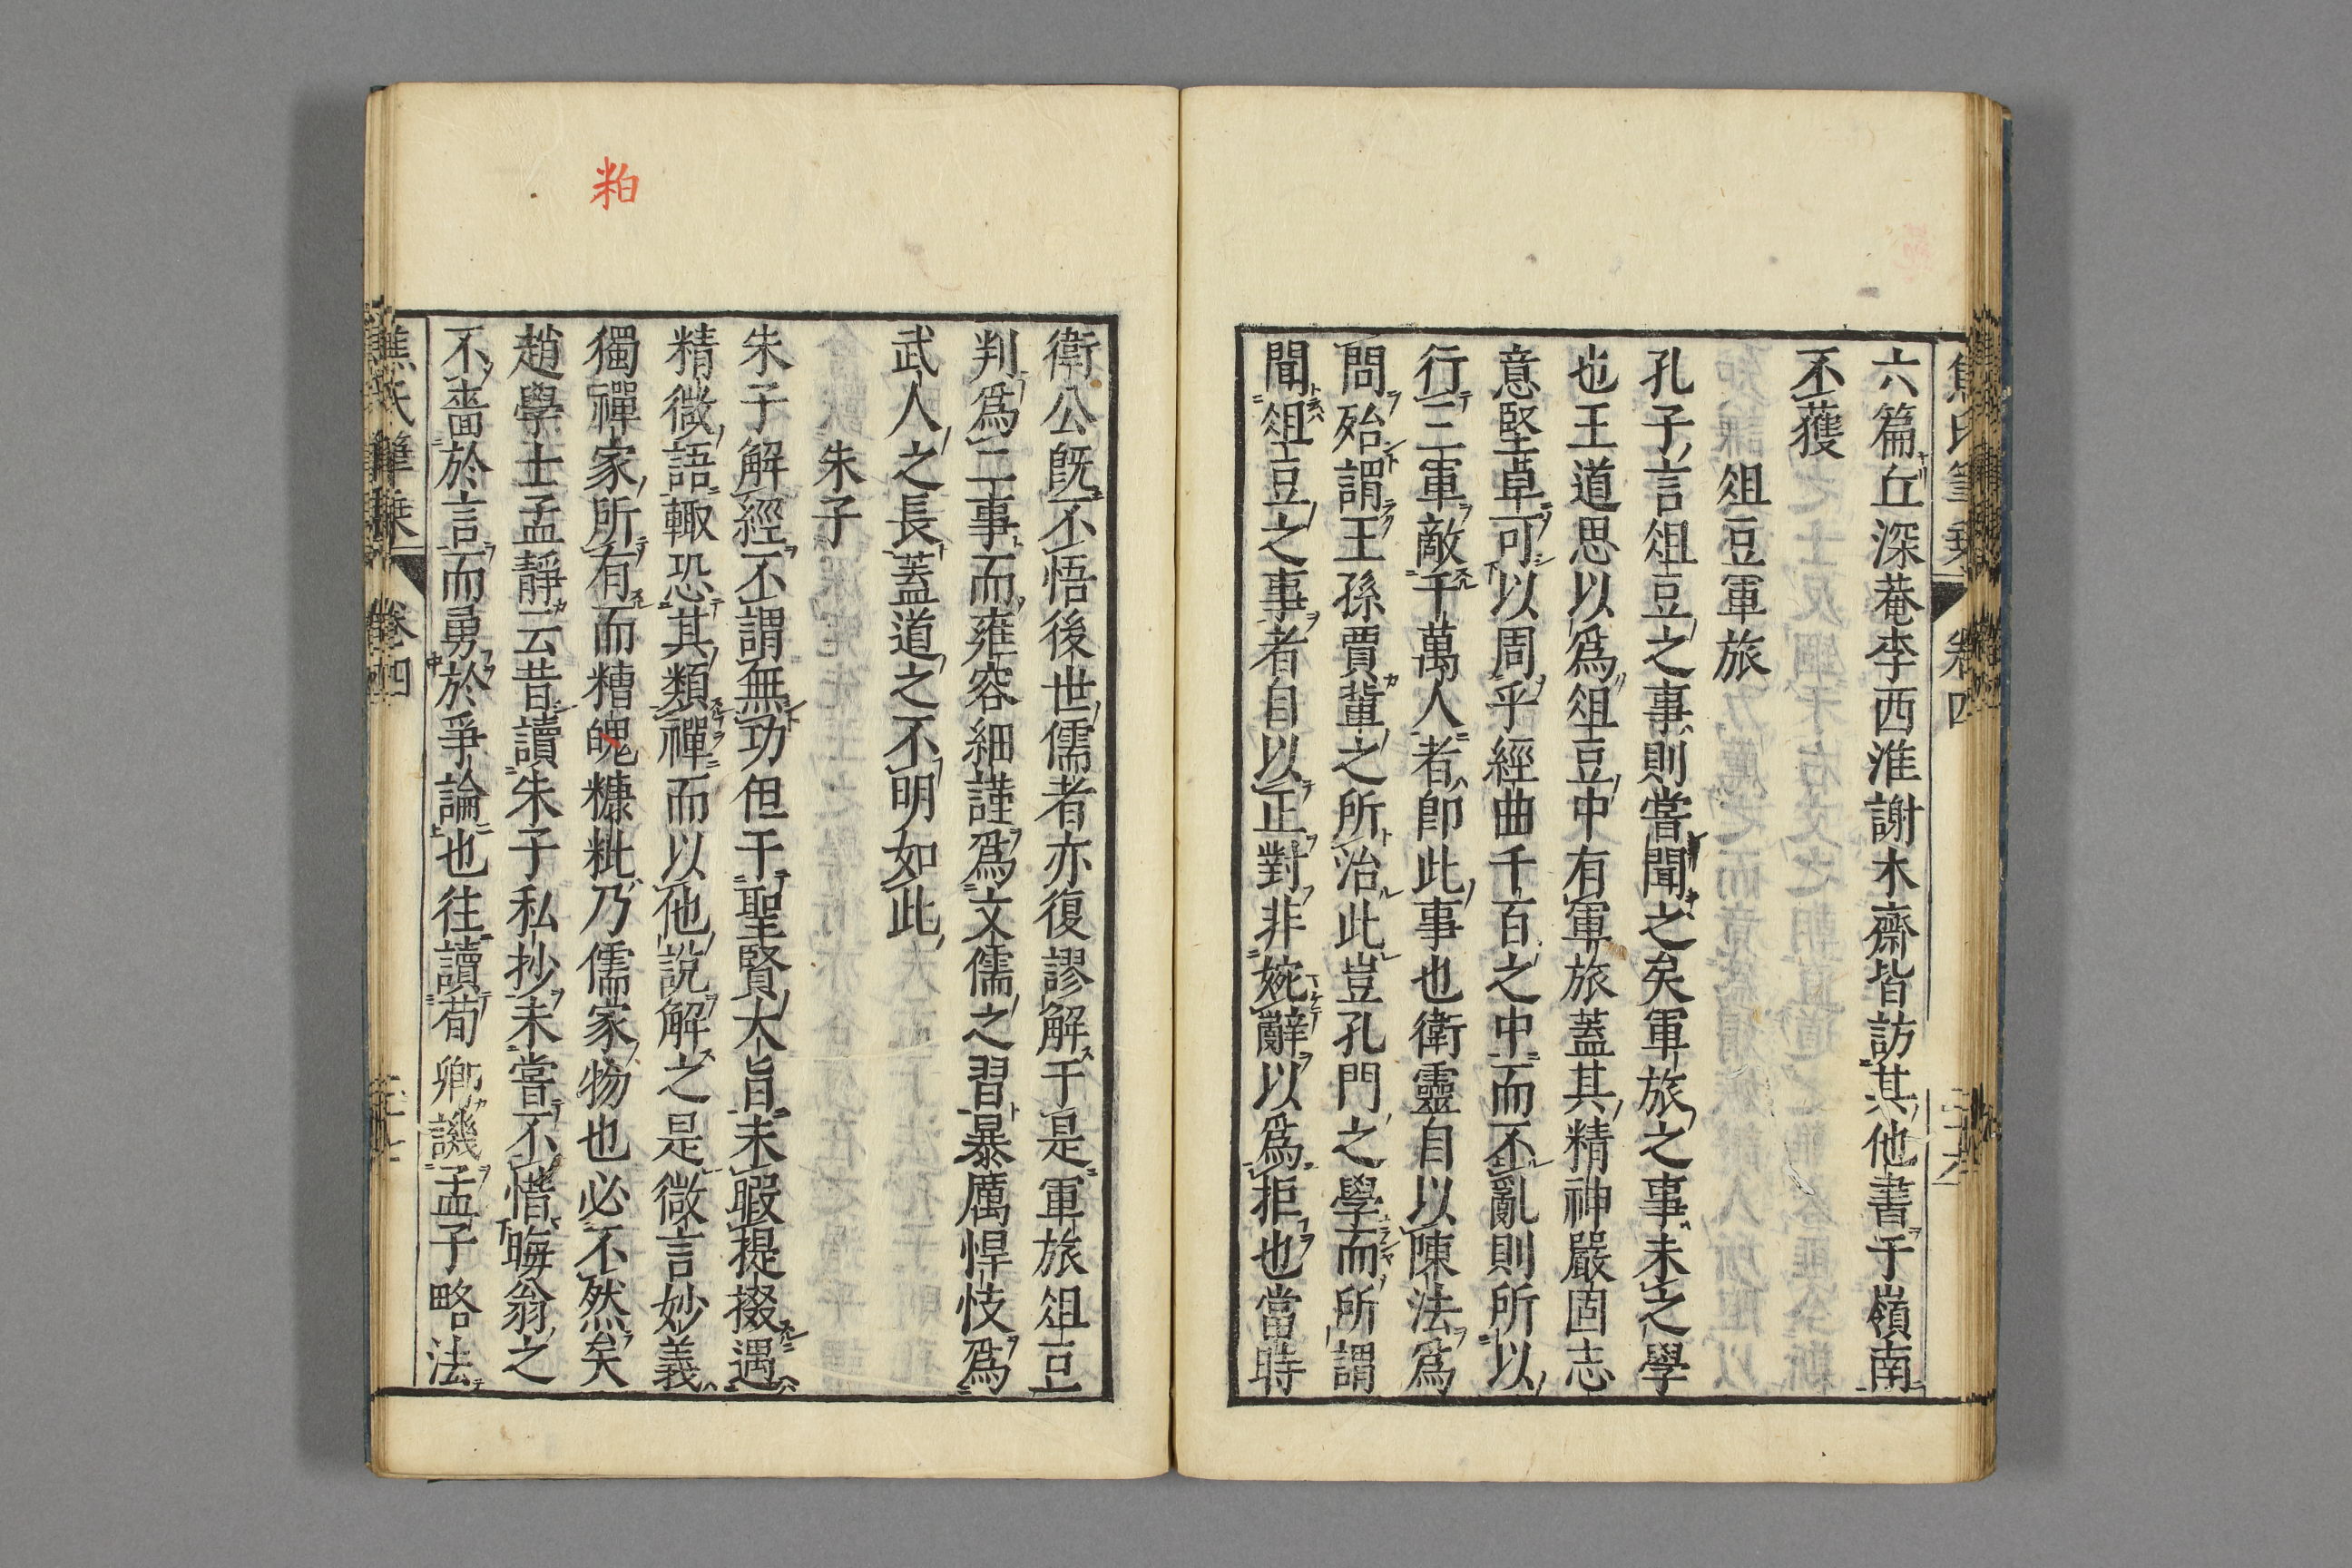 六篇丘深菴李西淮謝木齋皆訪其他書于嶺南
不獲
俎豆軍旅
孔子言俎豆之事則嘗聞之矣軍旅之事未之學
也王道思以為俎豆中有軍旅蓋其精神嚴固志
意堅卓可以周乎經曲千百之中而不亂則所以
行三軍敵千萬人者即此事也衛靈自以陳法為
問殆謂王孫賈輩之所治此豈孔門之學而所謂
聞俎豆之事者自以正對非婉辭以為拒也當時
衛公旣不悟後世儒者亦復謬解于是軍旅俎豆
判為二事而雍容細謹為文儒之習暴厲悍忮為
武人之長蓋道之不明如此
朱子
朱子解經不謂無功但于聖賢大旨未暇提掇遇
精微語輙恐其類禪而以他說解之是微言妙義
獨禪家所有而糟魄糠粃乃儒家物也必不然矣
粕
趙學士孟靜云昔讀朱子私抄未嘗不惜晦翁之
不嗇於言而勇於爭論也往讀荀卿譏孟子略法
焦氏筆乗
卷四